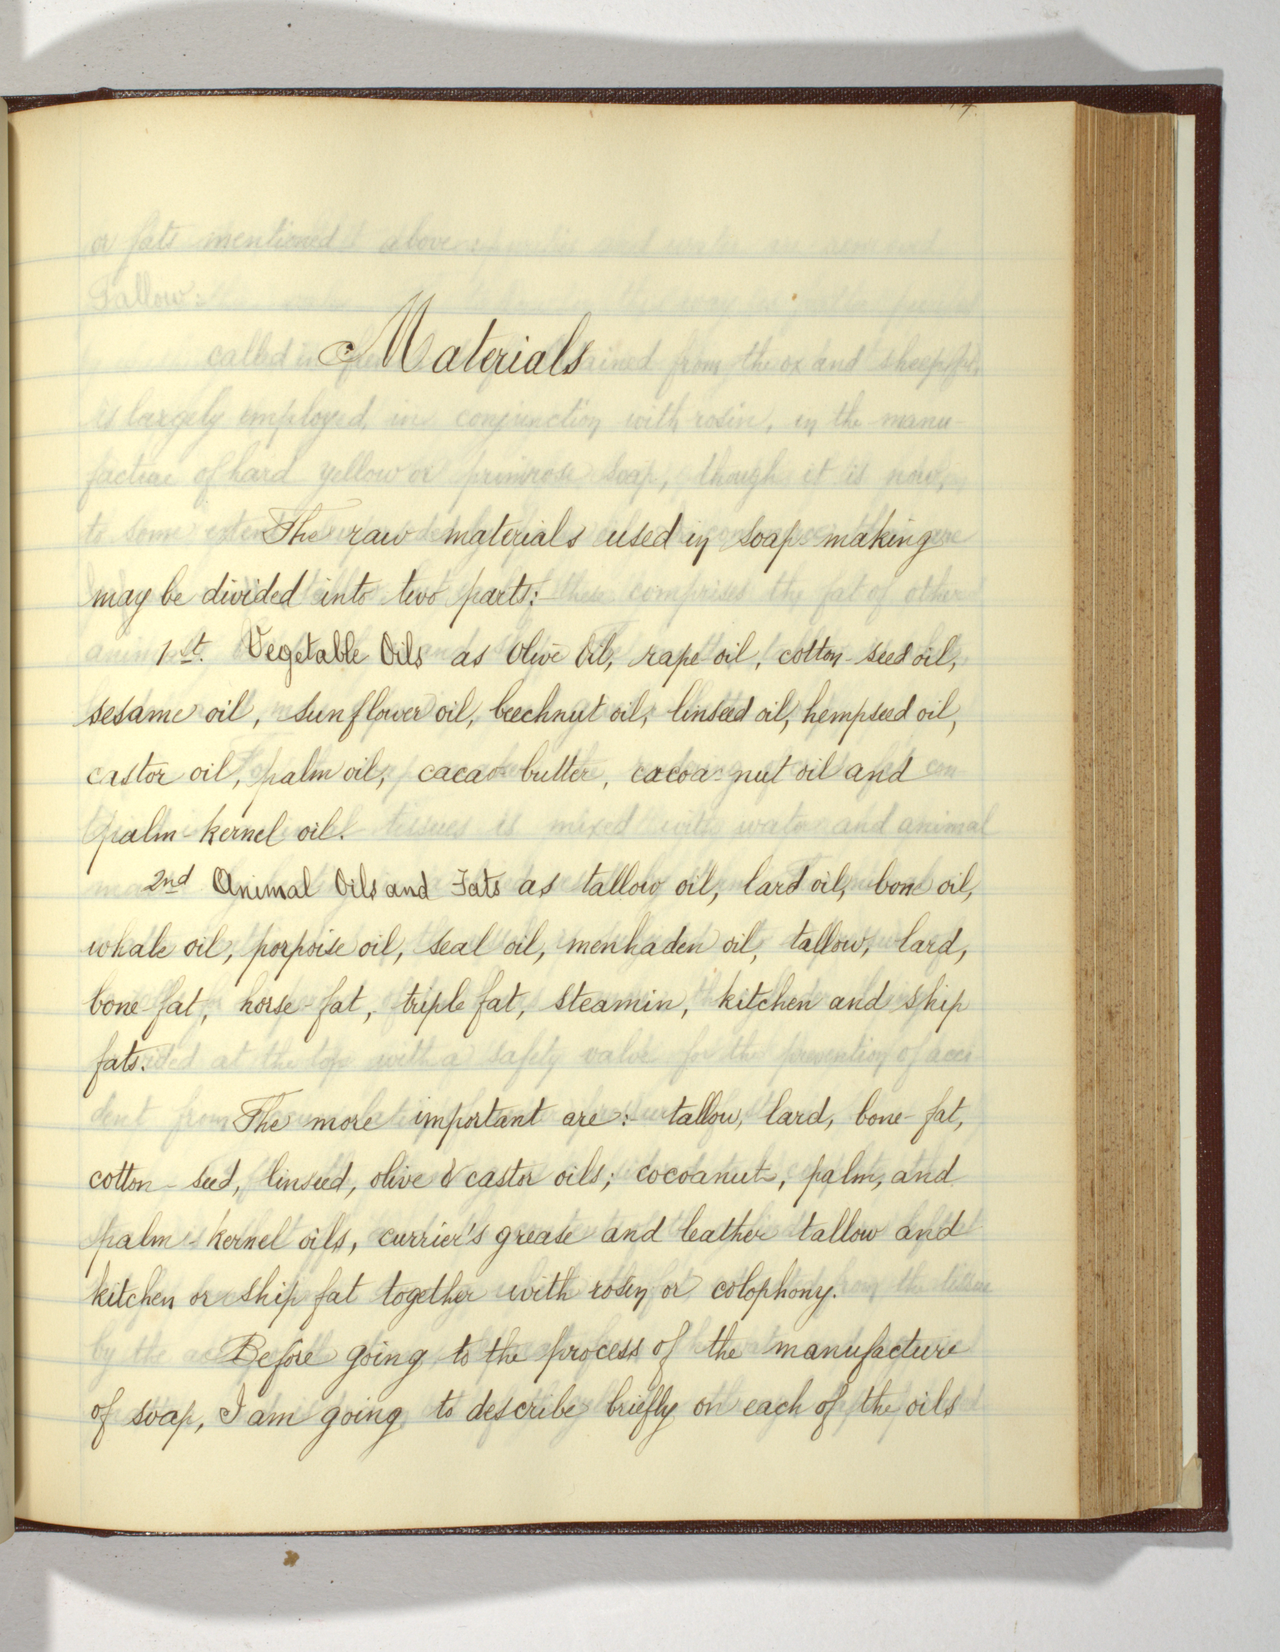 Materials
The raw materials used in soap making
may be divided into two parts:
1st. Vegetable Oils as Olive Oil, rape oil, cotton-seed oil,
sesame oil, sunflower oil, beechnut oil, linseed oil, hempseed oil,
castor oil, palm oil, cacao butter, cacoa-nut oil and
palm-kernel oil.
2nd Animal Oils and Fats as tallow oil, lard oil, bone oil,
whale oil, porpoise oil, seal oil, menhaden oil, tallow, lard,
bone-fat, horse-fat, triple fat, steamin, kitchen and ship
fats.
The more important are:- tallow, lard, bone-fat,
cotton-seed, linseed, olive & castor oils; cocoanut, palm, and
palm-kernel oils, currier's grease and leather tallow and
kitchen or ship fat together with rosin or colophony.
Before going to the process of the manufacture
of soap, I am going to describe briefly on each of the oils